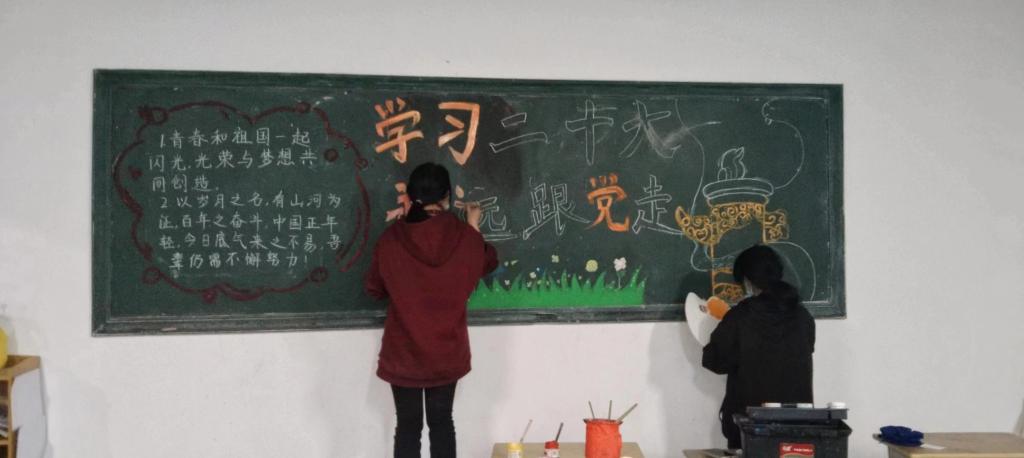 1.青春和祖国一起
闪光,光荣与梦想共
同创造。
2.以岁月之名,有山河为
证,百年之奋斗,中国正年
轻,今日底气来之不易,吾
辈仍需不懈努力!
学习二十大
远跟党走